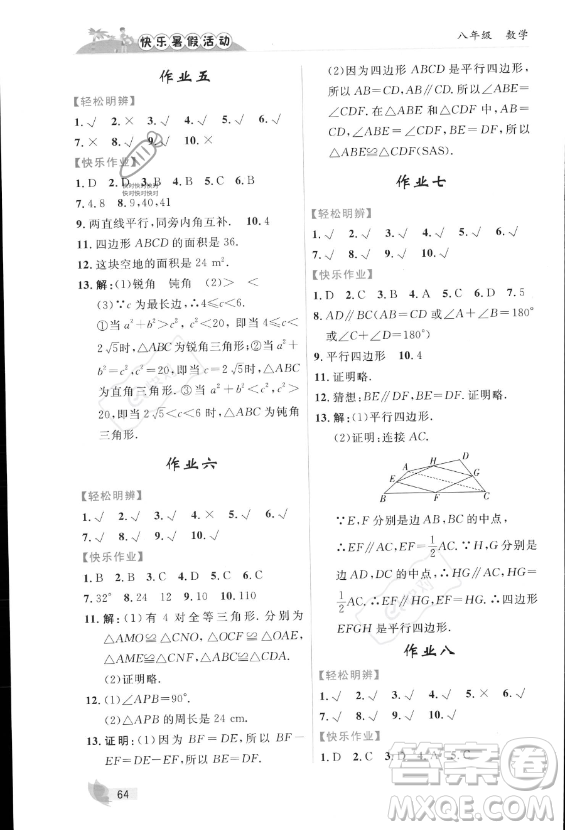 快乐暑假活动
八年级 数学
作业五
【轻松明辨】
1.√ 2.× 3.√ 4.√ 5.√ 6.√
7.× 8.√ 9.√ 10.×
【快乐作业】
1.D 2.D 3.B 4.D 5.D 6.D
7.4.8 8.9,40,41
9.两直线平行,同旁内角互补. 10.4
11.四边形 ABCD 的面积是 36.
12.这块空地的面积是 24 m².
13.解:(1)锐角 钝角 (2)> <
(3)∵c 为最长边,∴4≤c<6.
①当 a²+b²>c²,即当 4≤c<
2√5时,△ABC 为锐角三角形;②当
a²+b²=c²,即当 c=2√5时,△ABC
为直角三角形;③当 a²+b²<c²,
即当 2√5<c<6 时,△ABC 为钝角
三角形.
作业六
【轻松明辨】
1.√ 2.√ 3.× 4.√ 5.× 6.√
7.√ 8.√ 9.√ 10.√
【快乐作业】
1.B 2.B 3.D 4.C 5.C 6.D
7.32° 8.21 9.10 10.110
11.解:(1)有 4 对全等三角形.分别为
△AMO≌△CNO,△OCF≌△OAE,
△AME≌△CNF,△ABC≌△CDA.
(2)证明略.
12.(1)∠APB=90°.
(2)△APB 的周长是 24 cm.
13.证明:(1)因为 BE=DF,所以 BE-
EF=DF-EF,所以 BF=DE.
(2)因为四边形 ABCD 是平行四边形,
所以 AB=CD,AB∥CD,所以∠ABE
=∠CDF.在△ABE 和△CDF 中,
所以△ABE≌△CDF(SAS).
作业七
【轻松明辨】
1.√ 2.√ 3.√ 4.√ 5.× 6.√
7.√ 8.√ 9.√ 10.×
【快乐作业】
1.D 2.C 3.B 4.C 5.D 6.D 7.5
8.AD∥BC(AB=CD 或∠A+∠B=180°
或∠C+∠D=180°)
9.平行四边形 10.4
11.证明略.
12.猜想:BE∥DF,BE=DF.证明略.
13.解:(1)平行四边形.
(2)证明:连接 AC.
A H D
E G
B F C
∵E,F 分别是 AB,BC 的中点,
∴EF∥AC,EF=1/2AC.同理 HG=
1/2AC,HG∥AC,∴EF∥HG,EF=HG.∴四边形
EFGH 是平行四边形.
作业八
【轻松明辨】
1.√ 2.√ 3.√ 4.√ 5.× 6.√
7.√ 8.√ 9.√ 10.×
【快乐作业】
1.D 2.C
64